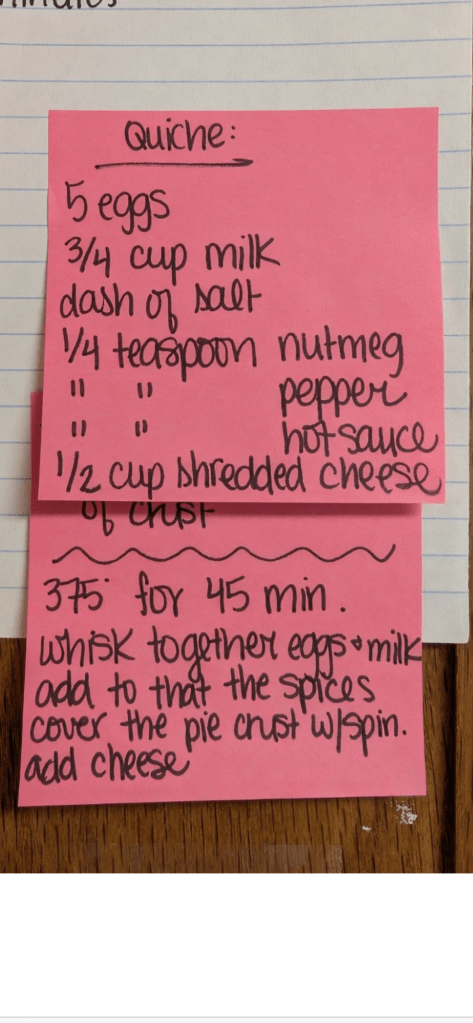 Quiche:
5 eggs
3/4 cup milk
dash of salt
1/4 teaspoon nutmeg
" " pepper
" " hot sauce
1/2 cup shredded cheese
of crust
375° for 45 min.
whisk together eggs + milk
add to that the spices
cover the pie crust w/spin.
add cheese